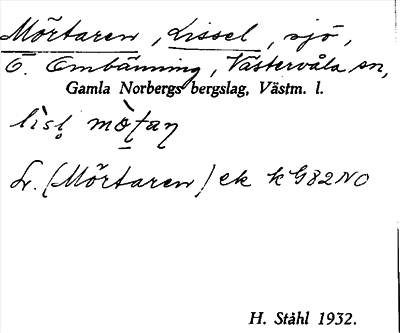 Mörtaren, Lissel, sjö,
Ö. Ombänning, Västervåla sn,
Gamla Norbergs bergslag, Västm. l.
Lr. (Mörtaren) ek k G82NO
H. Ståhl 1932.